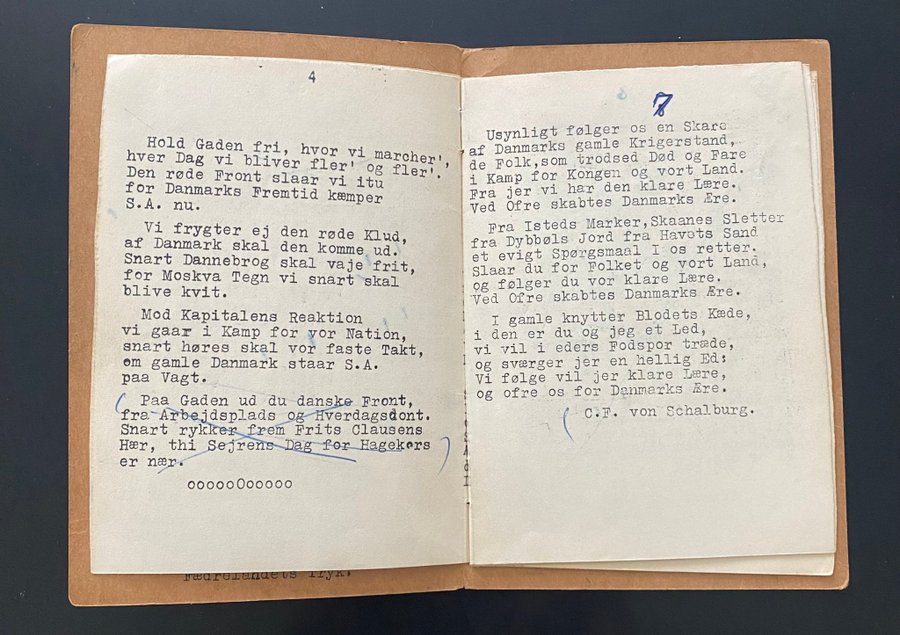 4
Hold Gaden fri, hvor vi marcher',
hver Dag vi bliver fler' og fler'.
Den røde Front slaar vi itu
for Danmarks Fremtid kæmper
S.A. nu.
Vi frygter ej den røde Klud,
af Danmark skal den komme ud.
Snart Dannebrog skal vaje frit,
for Moskva Tegn vi snart skal
blive kvit.
Mod Kapitalens Reaktion
vi gaar i Kamp for vor Nation,
snart høres skal vor faste Takt,
om gamle Danmark staar S.A.
paa Vagt.
( Paa Gaden ud du danske Front,
fra Arbejdsplads og Hverdagsdont.
Snart rykker frem Frits Clausens
Hær, thi Sejrens Dag for Hagekors
er nær. )
oooooOooooo
Fædrelandets Tryk.
7
Usynligt følger os en Skare
af Danmarks gamle Krigerstand,
de Folk,som trodsed Død og Fare
i Kamp for Kongen og vort Land.
Fra jer vi har den klare Lære.
Ved Ofre skabtes Danmarks Ære.
Fra Isteds Marker,Skaanes Sletter
fra Dybbøls Jord fra Havets Sand
et evigt Spørgsmaal I os retter.
Slaar du for Folket og vort Land,
og følger du vor klare Lære.
Ved Ofre skabtes Danmarks Ære.
I gamle knytter Blodets Kæde,
i den er du og jeg et Led,
vi vil i eders Fodspor træde,
og sværger jer en hellig Ed:
Vi følge vil jer klare Lære,
og ofre os for Danmarks Ære.
( C.F. von Schalburg.